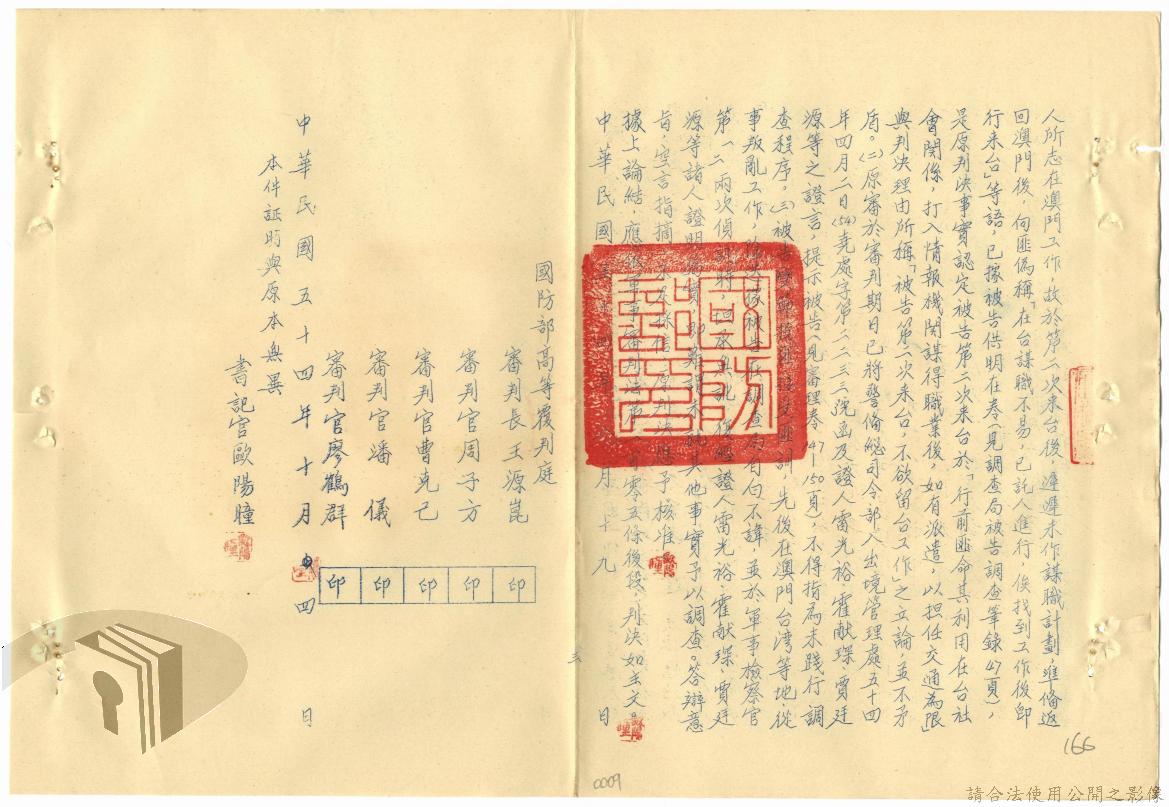 人所志在澳門工作，故於第二次來台後，遲遲未作謀職計劃，準備返
回澳門後，向匪偽稱「在台謀職不易，已託人進行，俟找到工作後即
行來台」等語，已據被告供明在卷（見調查局被告調查筆錄47頁），
是原判決事實認定被告第二次來台於「行前匪命其利用在台社
會關係，打入情報機関謀得職業後，如有派遣，以担任交通為限」
與判決理由所稱「被告第二次來台，不欲留台工作」之立論，並不矛
盾。㈡原審於審判期日已將警備總司令部入出境管理處五十四
年四月二日(54)堯處字第二二三三號函及證人雷光裕、霍献琛、賈廷
源等之證言，提示被告（見審理卷47—150頁），不得指為未踐行調
查程序。㈢被告 訓，先後在澳門台湾等地，從
事叛亂工作， 據被告在調查局自白不諱，並於軍事檢察官
第一二兩次偵訊時， 證人雷光裕、霍献琛、賈廷
源等諸人證明 其他事實予以調查。答辯意
旨，空言指摘， 採信，原判決 予核准。
據上論結，應依軍事審判法第 百零五條後段，判決如主文。
中華民國 月十九日
國防部高等覆判庭
審判長王源崑 印
審判官周子方 印
審判官曹克己 印
審判官潘儀 印
審判官廖鶴群 印
中華民國五十四年十月 四日
本件証明與原本無異
書記官歐陽曈
三
國防部印
166
0009
請合法使用公開之影像